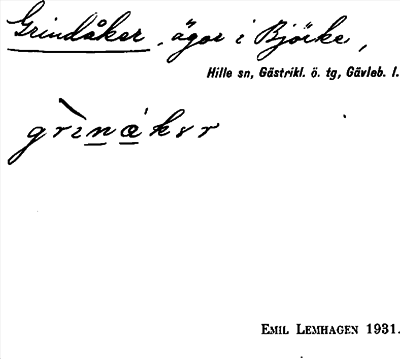 Grindåker, ägor i Björke,
Hille sn, Gästrikl. ö. tg, Gävleb. l.
grìnákər
EMIL LEMHAGEN 1931.